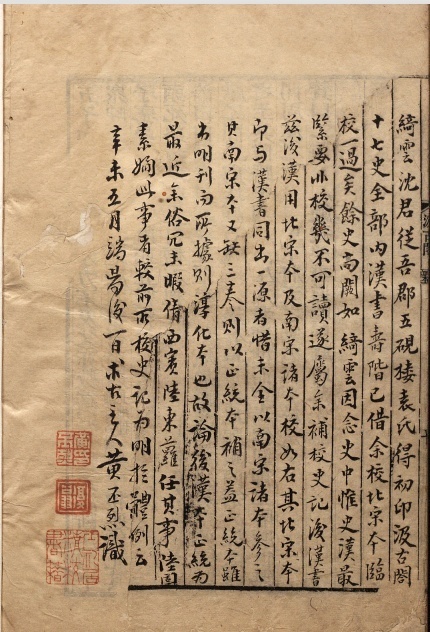 綺雲沈君從吾郡五硯樓袁氏得初印汲古閣
十七史全部内漢書壽階已借余校北宋本臨
校一過矣餘史尚闕如綺雲因念史中惟史漢最
緊要非校幾不可讀遂屬余補校史記後漢書
茲後漢用北宋本及南宋諸本校如右其北宋本
即与漢書同出一源者惜未全以南宋諸本參之
其南宋本又缺三奏則以正統本補之蓋正統本雖
出明刊而所據則淳化本也故論後漢本正統為
最近余俗冗未暇倩西賓陸東蘿任其事陸固
素嫻此事者較前所校史記為明於體例云
辛未五月端陽後一日求古主人黄丕烈識